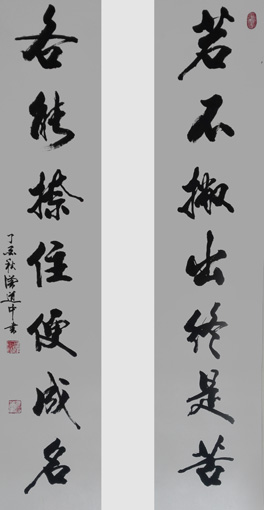 若不撇出终是苦
各能捺住便成名
丁亥秋道中书